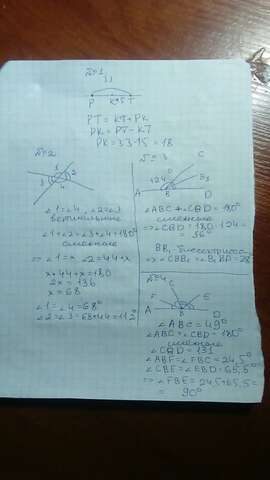 №1
33
P K 15 T
PT = KT + PK
PK = PT - KT
PK = 33-15 = 18
№2
1
3 2
4
∠1 = ∠4, ∠2=∠3
вертикальные
∠1+∠2=∠3+∠4=180°
смежные
⇒ ∠1=x ∠2=44+x
x+44+x=180
2x = 136
x = 68
∠1 = ∠4 = 68°
∠2 = ∠3 = 68+44=112°
№3
C
124 B1
A B D
∠ABC + ∠CBD = 180°
смежные
⇒ ∠CBD = 180-124=
= 56°
BB1 - биссектриса
⇒ ∠CBB1 = ∠B1BD = 28
№4
F C E
A B D
∠ABC = 49°
∠ABC + ∠CBD = 180°
смежные
∠CBD = 131
∠ABF = ∠FBC = 24,5°
∠CBE = ∠EBD = 65,5°
⇒ ∠FBE = 24,5+65,5=
= 90°